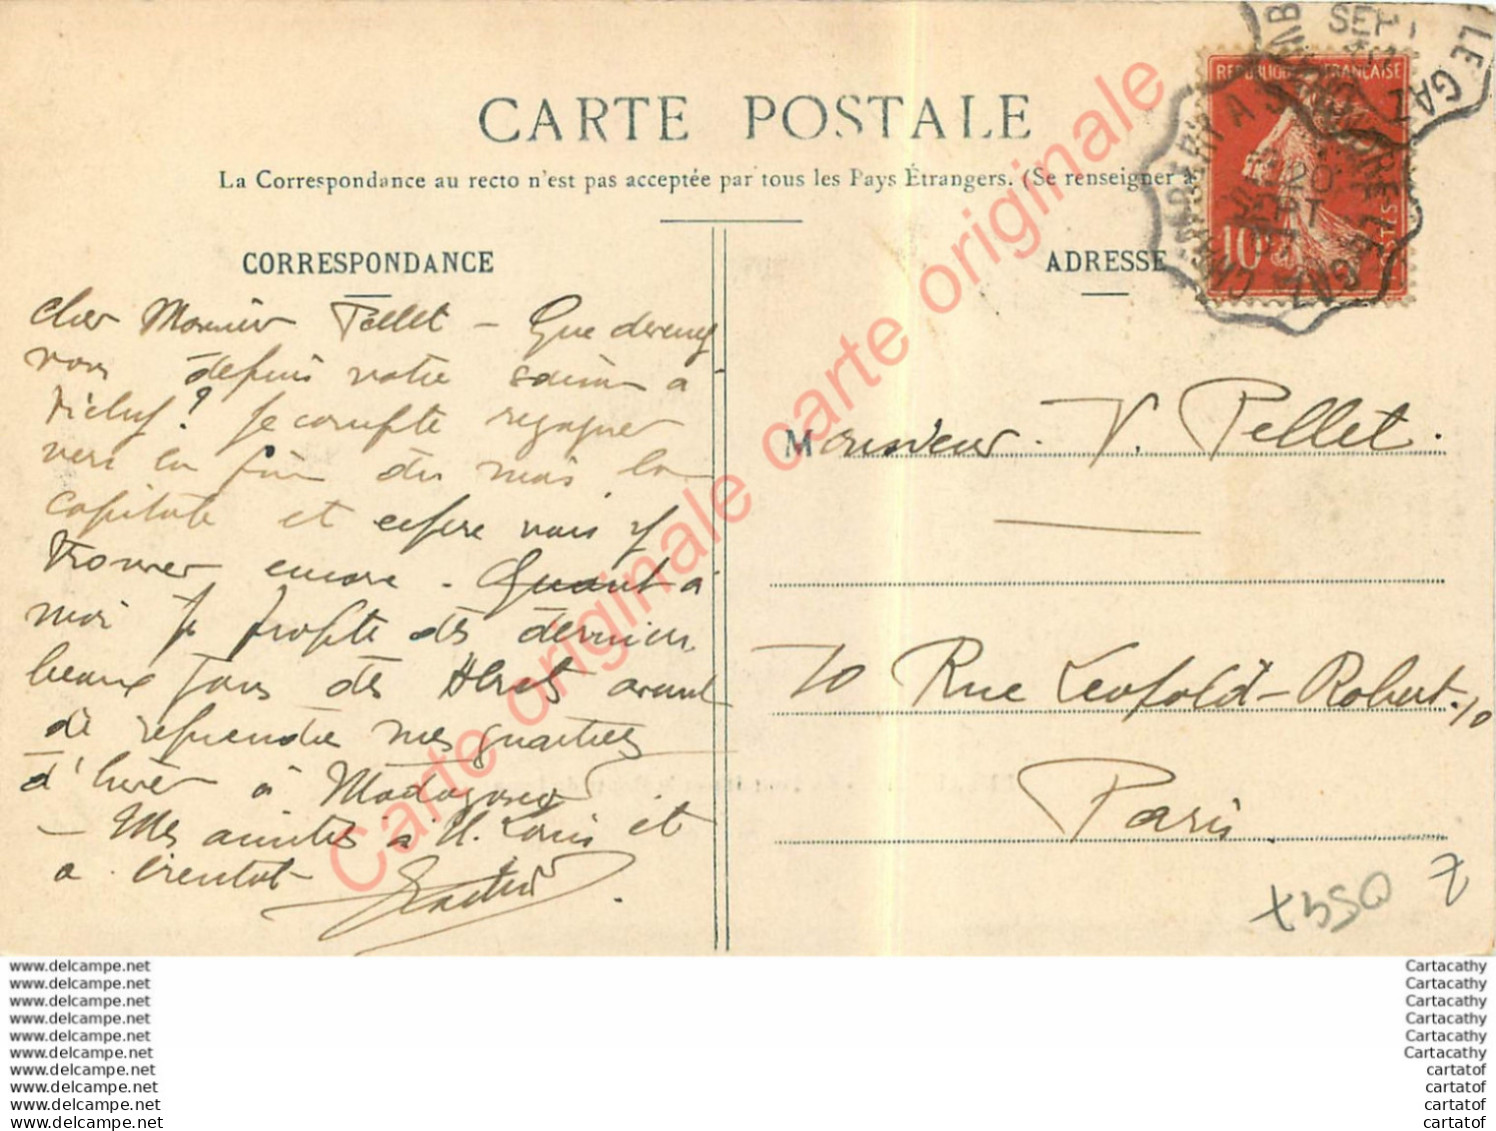 CARTE POSTALE
La Correspondance au recto n'est pas acceptée par tous les Pays Étrangers. (Se renseigner à
CORRESPONDANCE
cher Monsieur Pellet - Que devenez
vous depuis votre saison à
Vichy? Je compte regagner
vers la fin du mois la
capitale et espère vous y
trouver encore. Quant à
moi je profite des derniers
beaux jours des Alpes avant
de reprendre mes quartiers
d'hiver à Madagascar
- Mes amitiés à M. Louis et
a bientot
ADRESSE
Monsieur. V. Pellet.
70 Rue Léopold-Robert. 10
Paris
REPUBLIQUE FRANÇAISE
POSTES
10
SEPT
LE GAZ
20
SEPT
Carte originale carte originale carte originale
www.delcampe.net
www.delcampe.net
www.delcampe.net
www.delcampe.net
www.delcampe.net
www.delcampe.net
www.delcampe.net
www.delcampe.net
www.delcampe.net
www.delcampe.net
Cartacathy
Cartacathy
Cartacathy
Cartacathy
Cartacathy
Cartacathy
cartatof
cartatof
cartatof
cartatof